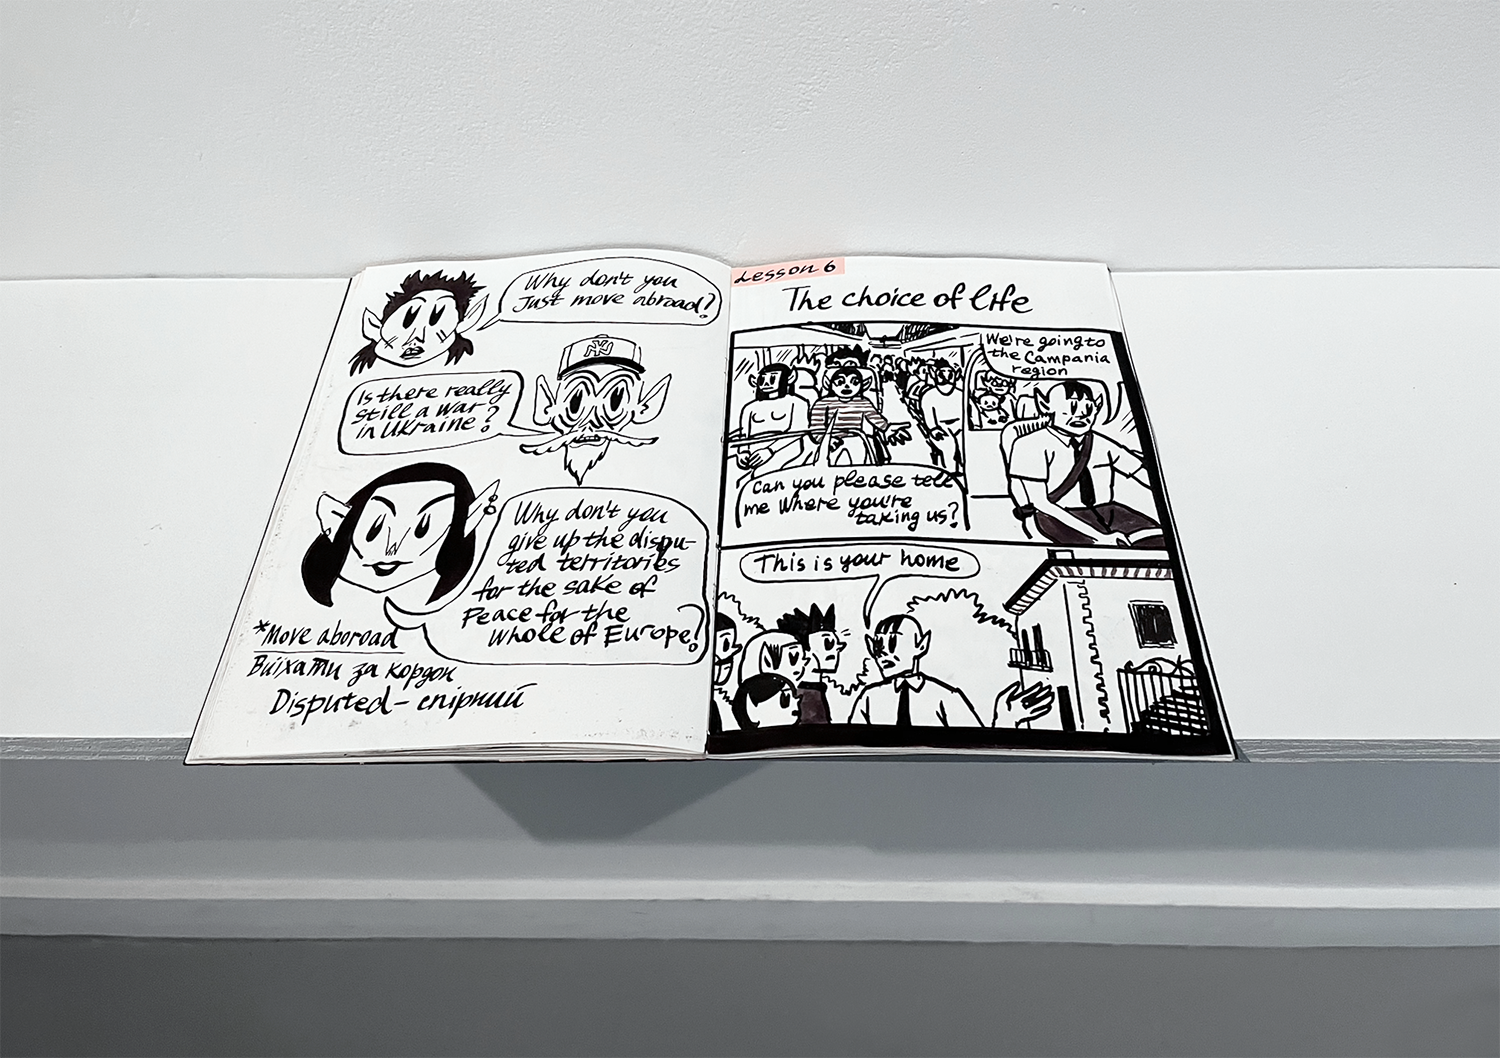 Why don't you
Just move abroad?
NY
Is there really
still a war
in Ukraine?
Why don't you
give up the dispu-
ted territories
for the sake of
Peace for the
whole of Europe?
*Move aboroad
Виїхати за кордон
Disputed – спірний
Lesson 6
The choice of life
We're going to
the Campania
region
Can you please tell
me where you're
taking us?
This is your home